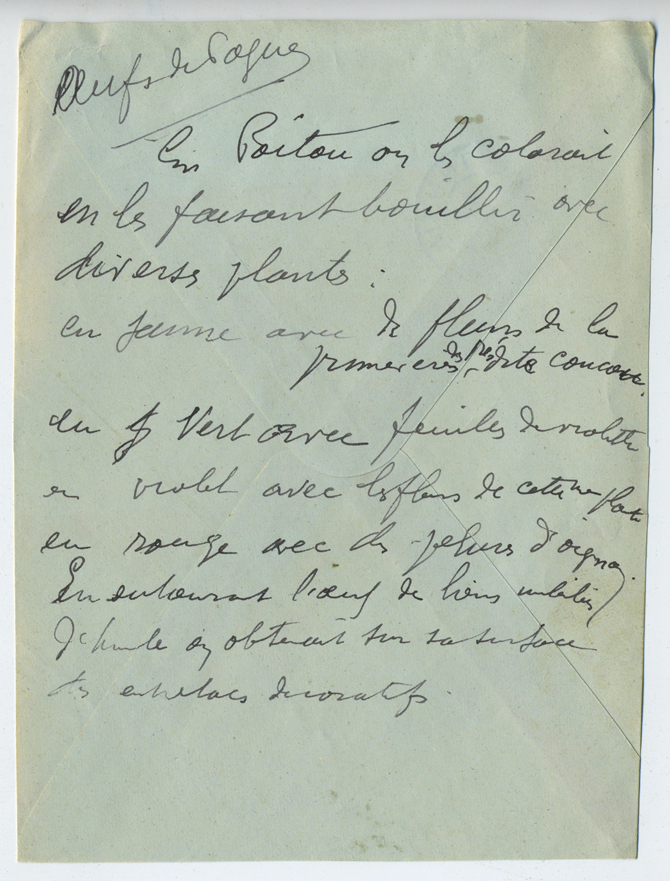 Oeufs de Pâques
En Poitou on les colorait
en les faisant bouillir avec
diverses plantes :
en jaune avec de fleurs de la
primevère des prés dite coucou
en Vert avec feuilles de violette
en violet avec les fleurs de cette me plante
en rouge avec des pelures d'oignon.
En entourant l'oeuf de liens imbibés
d'huile on obtenait sur sa surface
des entrelacs décoratifs.